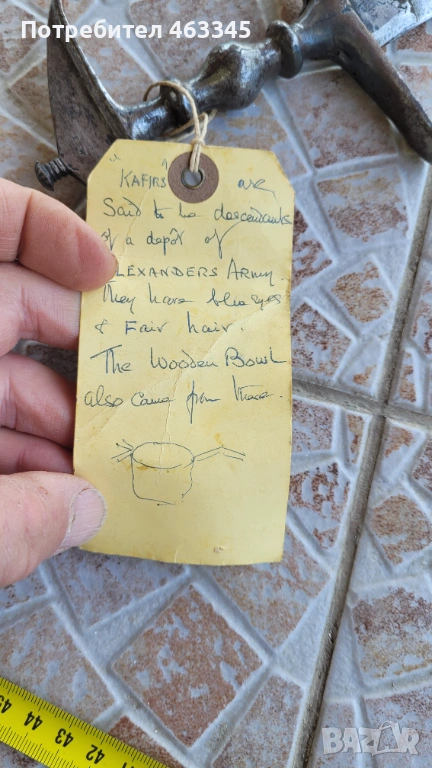 Потребител 463345
"KAFIRS" are
Said to be descendants
of a depôt of
ALEXANDERS ARMY.
They have blue eyes
& Fair hair.
The Wooden Bowl
also came from there.
45 44 43 42 41
BAZAR